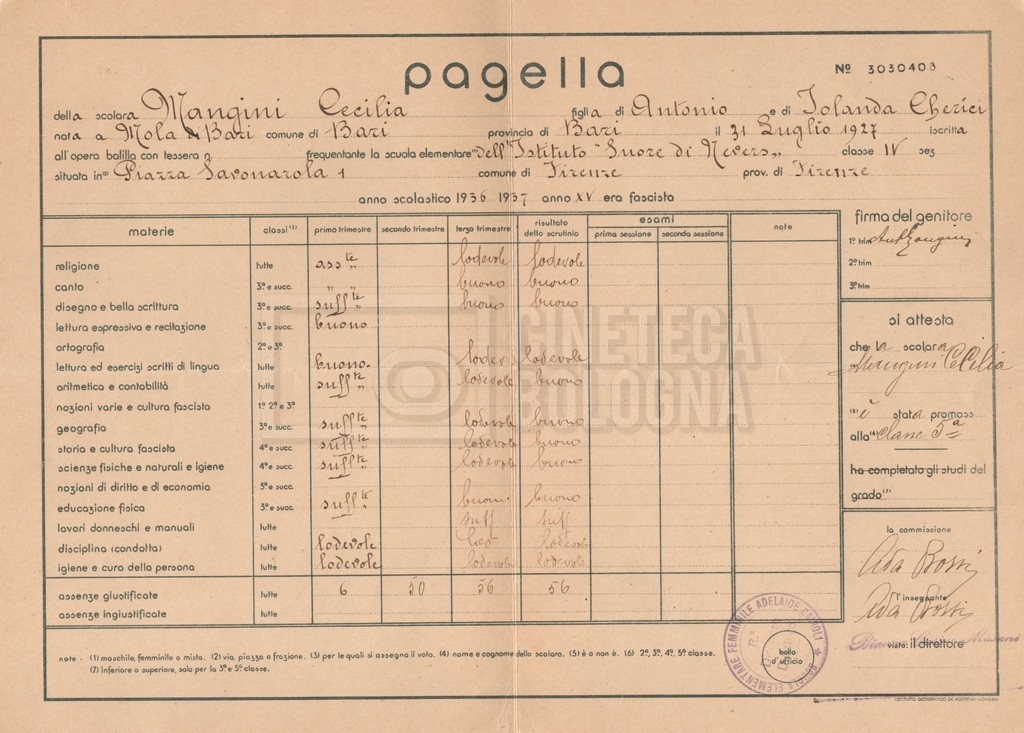 pagella
Nº 3030408
della scolara Mangini Cecilia figlia di Antonio e di Iolanda Cherici
nata a Mola di Bari comune di Bari provincia di Bari il 31 Luglio 1927 iscritta
all'opera balilla con tessera n. frequentante la scuola elementare "dell'Istituto "Suore di Nevers" classe IV sez
situata in Piazza Savonarola 1 comune di Firenze prov. di Firenze
anno scolastico 1936 1937 anno XV era fascista
materie classi (3) primo trimestre secondo trimestre terzo trimestre risultato dello scrutinio esami prima sessione seconda sessione note
religione tutte ass te lodevole lodevole
canto 3ª e succ. " " buono buono
disegno e bella scrittura 3ª e succ. suff te buono buono
lettura espressiva e recitazione 3ª e succ. buono
ortografia 2ª e 3ª
lettura ed esercizi scritti di lingua tutte buono lodev lodevole
aritmetica e contabilità tutte suff " lodevole buono
nozioni varie e cultura fascista 1ª 2ª e 3ª
geografia 3ª e succ. suff te lodevole buono
storia e cultura fascista 4ª e succ. suff te lodevole buono
scienze fisiche e naturali e igiene 4ª e succ. suff te lodevole buono
nozioni di diritto e di economia 5ª e succ.
educazione fisica 3ª e succ. suff te buono buono
lavori donneschi e manuali tutte suff suff
disciplina (condotta) tutte lodevole lodevole
igiene e cura della persona tutte lodevole lodevole lodevole
assenze giustificate tutte 6 50 56 56
assenze ingiustificate tutte
firma del genitore
1º trim
2º trim
3º trim
si attesta
che la scolara
Mangini Cecilia
è stata promossa
alla classe 5ª
ha completato gli studi del
grado (7)
la commissione
Ada Bossi
l'insegnante
Ada Bossi
visto: il direttore
note - (1) maschile, femminile o mista. (2) via, piazza o frazione. (3) per le quali si assegna il voto. (4) nome e cognome dello scolaro. (5) è o non è. (6) 2ª, 3ª, 4ª, 5ª classe.
(7) inferiore o superiore, solo per la 3ª e 5ª classe.
bollo d'ufficio
SCUOLA ELEMENTARE FEMMINILE ADELAIDE CAIROLI
CINETECA
BOLOGNA